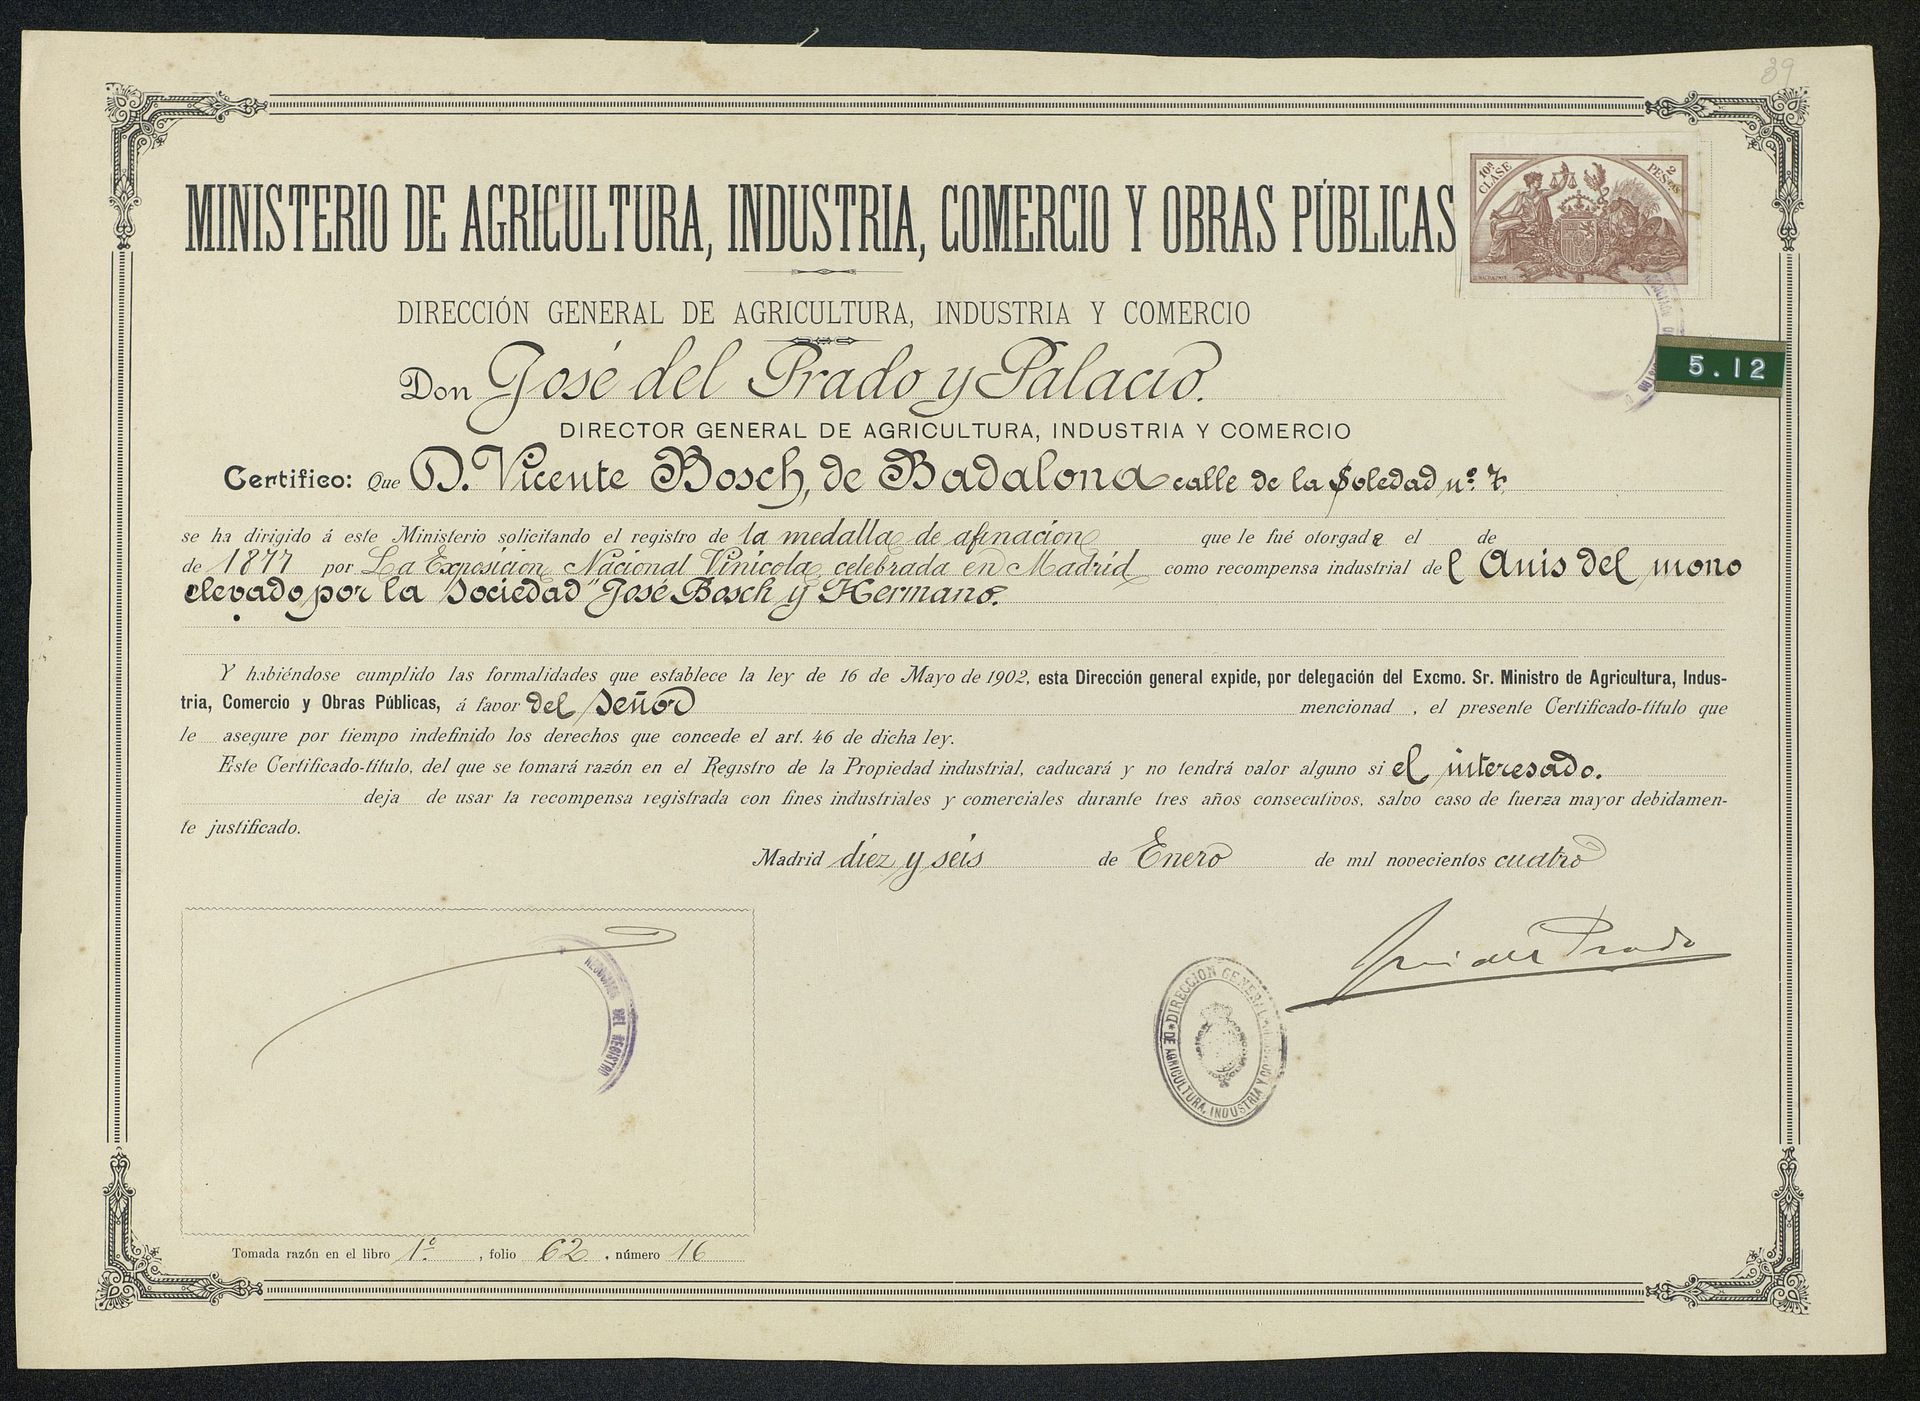 39
10ª CLASE 2 PESETAS
MINISTERIO DE AGRICULTURA, INDUSTRIA, COMERCIO Y OBRAS PÚBLICAS
DIRECCIÓN GENERAL DE AGRICULTURA, INDUSTRIA Y COMERCIO
5.12
Don José del Prado y Palacio.
DIRECTOR GENERAL DE AGRICULTURA, INDUSTRIA Y COMERCIO
Certifico: Que D. Vicente Bosch, de Badalona calle de la Soledad nº 7
se ha dirigido á este Ministerio solicitando el registro de la medalla de afinacion que le fué otorgada el de
de 1877 por La Exposicion Nacional Vinicola celebrada en Madrid como recompensa industrial del Anis del mono
elevado por la Sociedad "José Bosch y Hermano.
Y habiéndose cumplido las formalidades que establece la ley de 16 de Mayo de 1902, esta Dirección general expide, por delegación del Excmo. Sr. Ministro de Agricultura, Indus-
tria, Comercio y Obras Públicas, á favor del Señor mencionad , el presente Certificado-título que
le asegure por tiempo indefinido los derechos que concede el art. 46 de dicha ley.
Este Certificado-título, del que se tomará razón en el Registro de la Propiedad industrial, caducará y no tendrá valor alguno si el interesado.
deja de usar la recompensa registrada con fines industriales y comerciales durante tres años consecutivos, salvo caso de fuerza mayor debidamen-
te justificado.
Madrid diez y seis de Enero de mil novecientos cuatro
José del Prado
NEGOCIADO DEL REGISTRO
DIRECCIÓN GENERAL DE AGRICULTURA, INDUSTRIA Y COMERCIO
Tomada razón en el libro 1º, folio 62, número 16